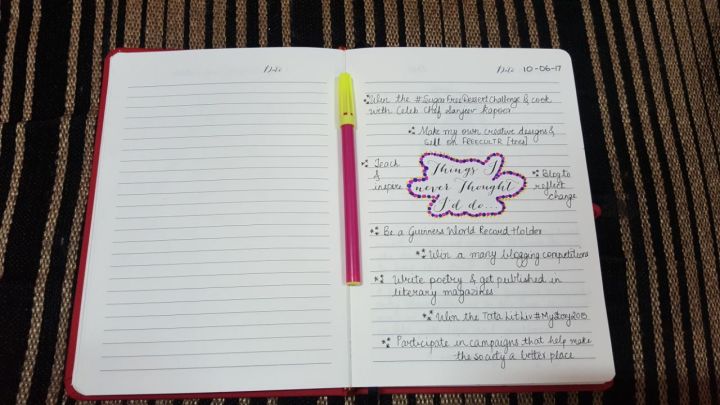 Date
Date 10-06-17
Win the #SugarFreeDessertChallenge & cook
with Celeb Chef Sanjeev Kapoor
Make my own creative designs &
sell on FREECULTR [tees]
Teach
&
inspire
Things I
never Thought
I'd do...
Blog to
reflect
change
Be a Guinness World Record Holder
Win a many blogging competitions
Write poetry & get published in
literary magazines
Won the Tata LitLiv #MyStory2015
Participate in campaigns that help make
the society a better place